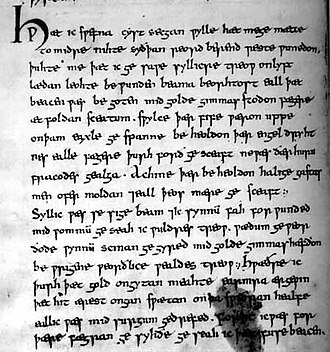 HǷæt ic ſƿefna cyſt ſecgan ƿylle hæt mæge mætte
to midre nihte ſyðþan reord berend reſte ƿunedon.
þuhte me þæt ic ge ſaƿe ſyllicre treoƿ on lyft
lædan leohte be ƿunden beama beorhtoſt eall þæt
beacen ƿæſ be goten mid golde gimmaſ ſtodon fægere
æt foldan ſceatum. ſƿylce þær fife ƿæron uppe
on þam eaxle ge ſpanne be heoldon þær engel dryht
neſ ealle fægere þurh forð ge ſceaft ne ƿæſ ðær huru
fracodeſ gealga. Ac hine þær be heoldon halige gaſtaſ
men ofer moldan ⁊ eall þeoſ mære ge ſceaft.
Syllic ƿæſ ſe ſige beam ⁊ ic ſynnū fah for ƿunded
mid ƿommū ge ſeah ic ƿuldreſ treoƿ. ƿædum ge ƿeor
ðode ƿynnū ſcinan ge gyred mid golde gimmaſ hæfdon
be ƿrigene ƿeorðlice ƿealdeſ treoƿ. Hƿæðre ic
þurh þæt gold ongytan meahte earmra ærgeƿin
þæt hit æreſt ongan ſƿætan on þa ſƿiðran healfe
eall ic ƿæſ mid ſurgum gedrefed. forht ic ƿæſ for
þære fægran ge ſyhðe ge ſeah ic þæt fuſe beacen.